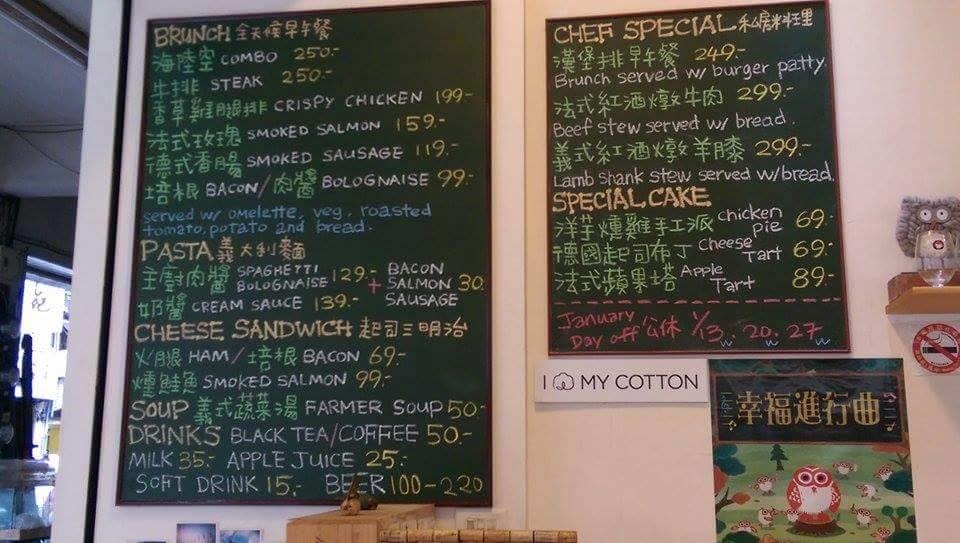 BRUNCH 全天候早午餐
海陸空 COMBO 250.-
牛排 STEAK 250.-
香草雞腿排 CRISPY CHICKEN 199-
法式玫瑰 SMOKED SALMON 159.-
德式香腸 SMOKED SAUSAGE 119.-
培根 BACON/肉醬 BOLOGNAISE 99-
served w/ omelette, veg, roasted
tomato, potato and bread.
PASTA 義大利麵
主廚肉醬 SPAGHETTI BOLOGNAISE 129.- + BACON SALMON SAUSAGE 30.
奶醬 CREAM SAUCE 139.-
CHEESE SANDWICH 起司三明治
火腿 HAM/培根 BACON 69.-
燻鮭魚 SMOKED SALMON 99.-
SOUP 義式蔬菜湯 FARMER SOUP 50.-
DRINKS BLACK TEA/COFFEE 50.-
MILK 35.- APPLE JUICE 25.-
SOFT DRINK 15.- BEER 100-220
CHEF SPECIAL 私房料理
漢堡排早午餐 249.-
Brunch served w/ burger patty.
法式紅酒燉牛肉 299.-
Beef stew served w/ bread.
義式紅酒燉羊膝 299.-
Lamb shank stew served w/bread.
SPECIAL CAKE
洋芋燻雞手工派 chicken pie 69.
德國起司布丁 Cheese Tart 69.
法式蘋果塔 Apple Tart 89.-
January Day off 公休 1/3w. 20w. 27w
I MY COTTON
幸福進行曲